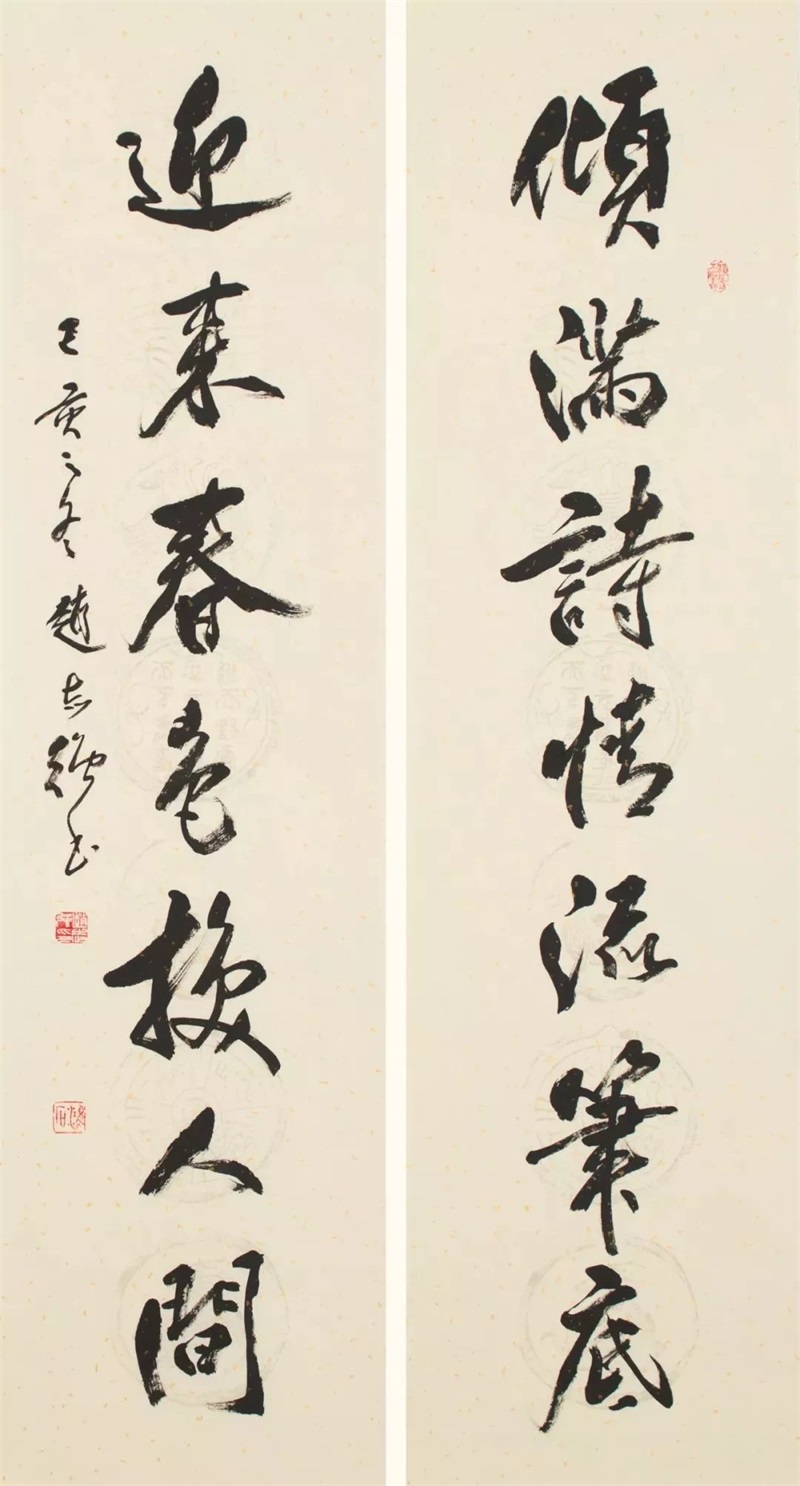 傾滿詩情流筆底
迎来春色換人間
壬寅之冬趙志強书